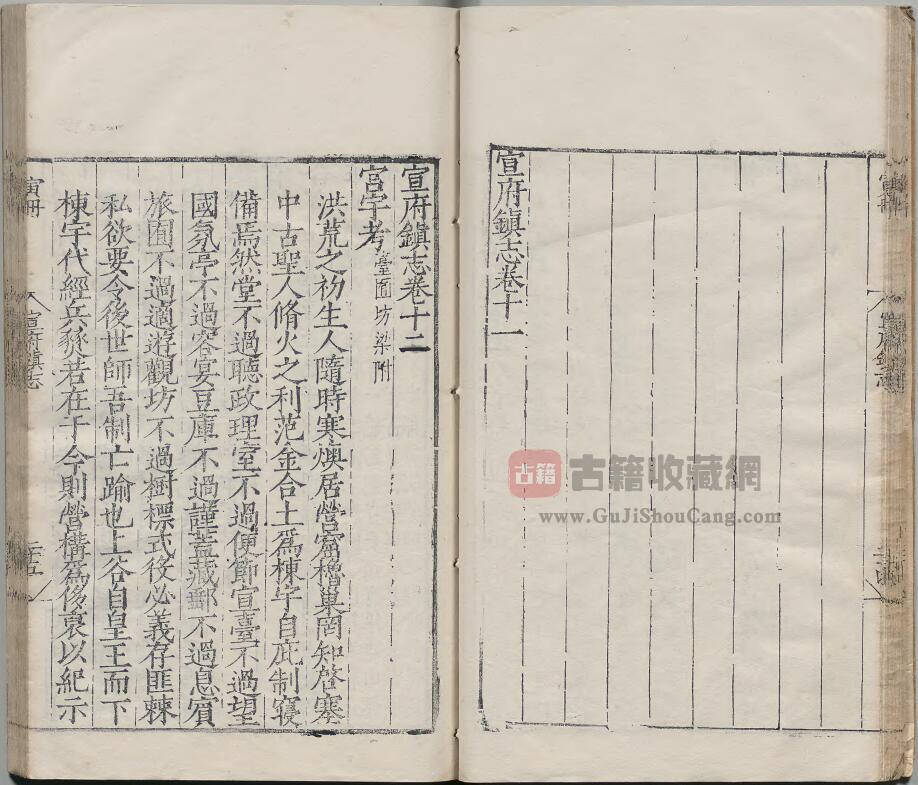 宣府鎮志卷十一
宣府鎮志卷十二
宮宇考 臺囿坊梁附
洪荒之初生人隨時寒燠居營窟橧巢罔知啓塞
中古聖人脩火之利范金合土爲棟宇自庇制寖
備焉然堂不過聽政理室不過便節宣臺不過望
國氛亭不過容宴豆庫不過謹蓋藏郵不過息賓
旅囿不過適遊觀坊不過樹標式役必義存匪棘
私欲要令後世師吾制亡踰也上谷自皇王而下
棟宇代經兵燹若在于今則營構爲侈裒以紀示
寅冊
宣府鎮志
二十五
古籍 古籍收藏網
www.GuJiShouCang.com